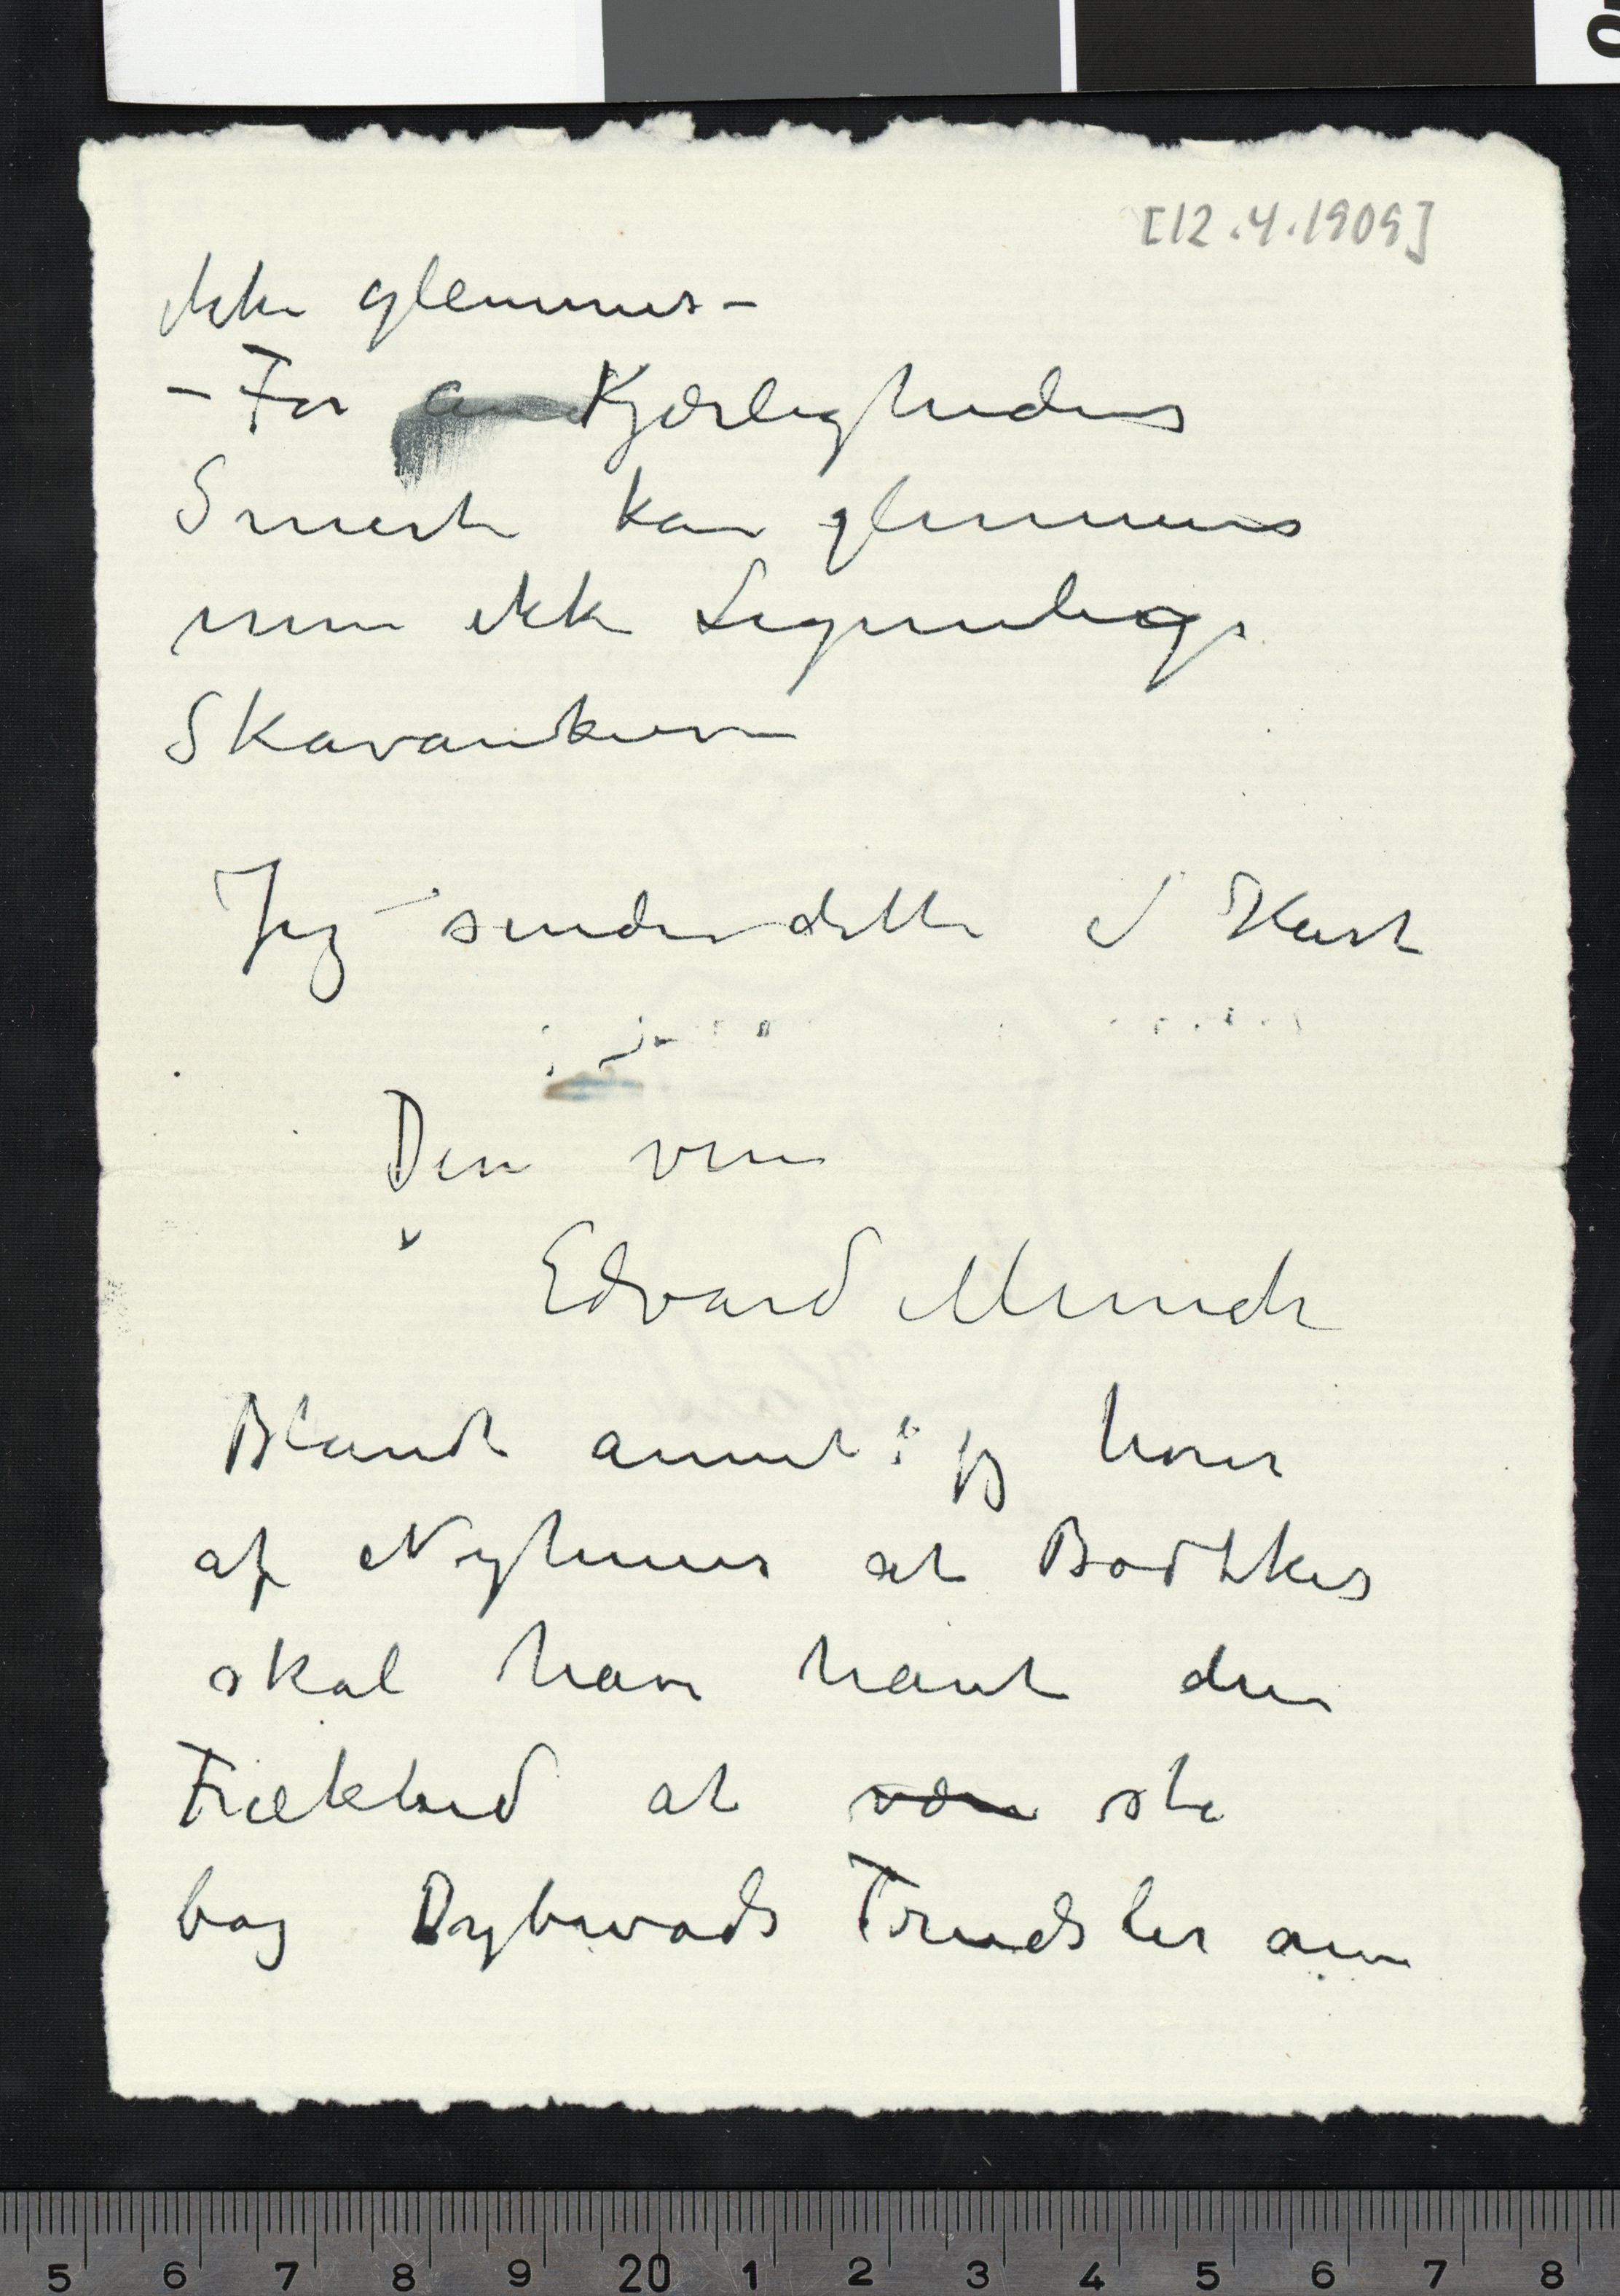 [12.4.1909]
ikke glemmes –
– For Kjærlighedens
Smerte kan glemmes
men ikke Legemlige
Skavanker
Jeg sender dette i Hast
Din ven
Edvard Munch
Blandt annet: jeg hører
af Nyhuus at Bødtker
skal have havt den
Frækhed at være stå
bag Dybwads Trudsler om
5 6 7 8 9 20 1 2 3 4 5 6 7 8